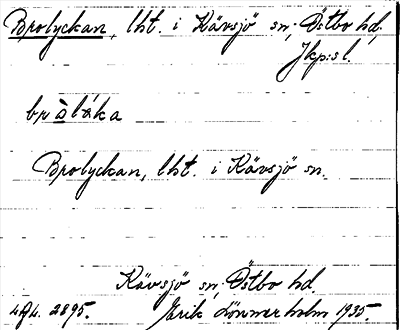 Brolyckan, lht. i Kävsjö sn, Östbo hd,
Jkp:s l.
bròláka
Brolyckan, lht. i Kävsjö sn.
Kävsjö sn, Östbo hd.
2895. Lönnerholm 1935.